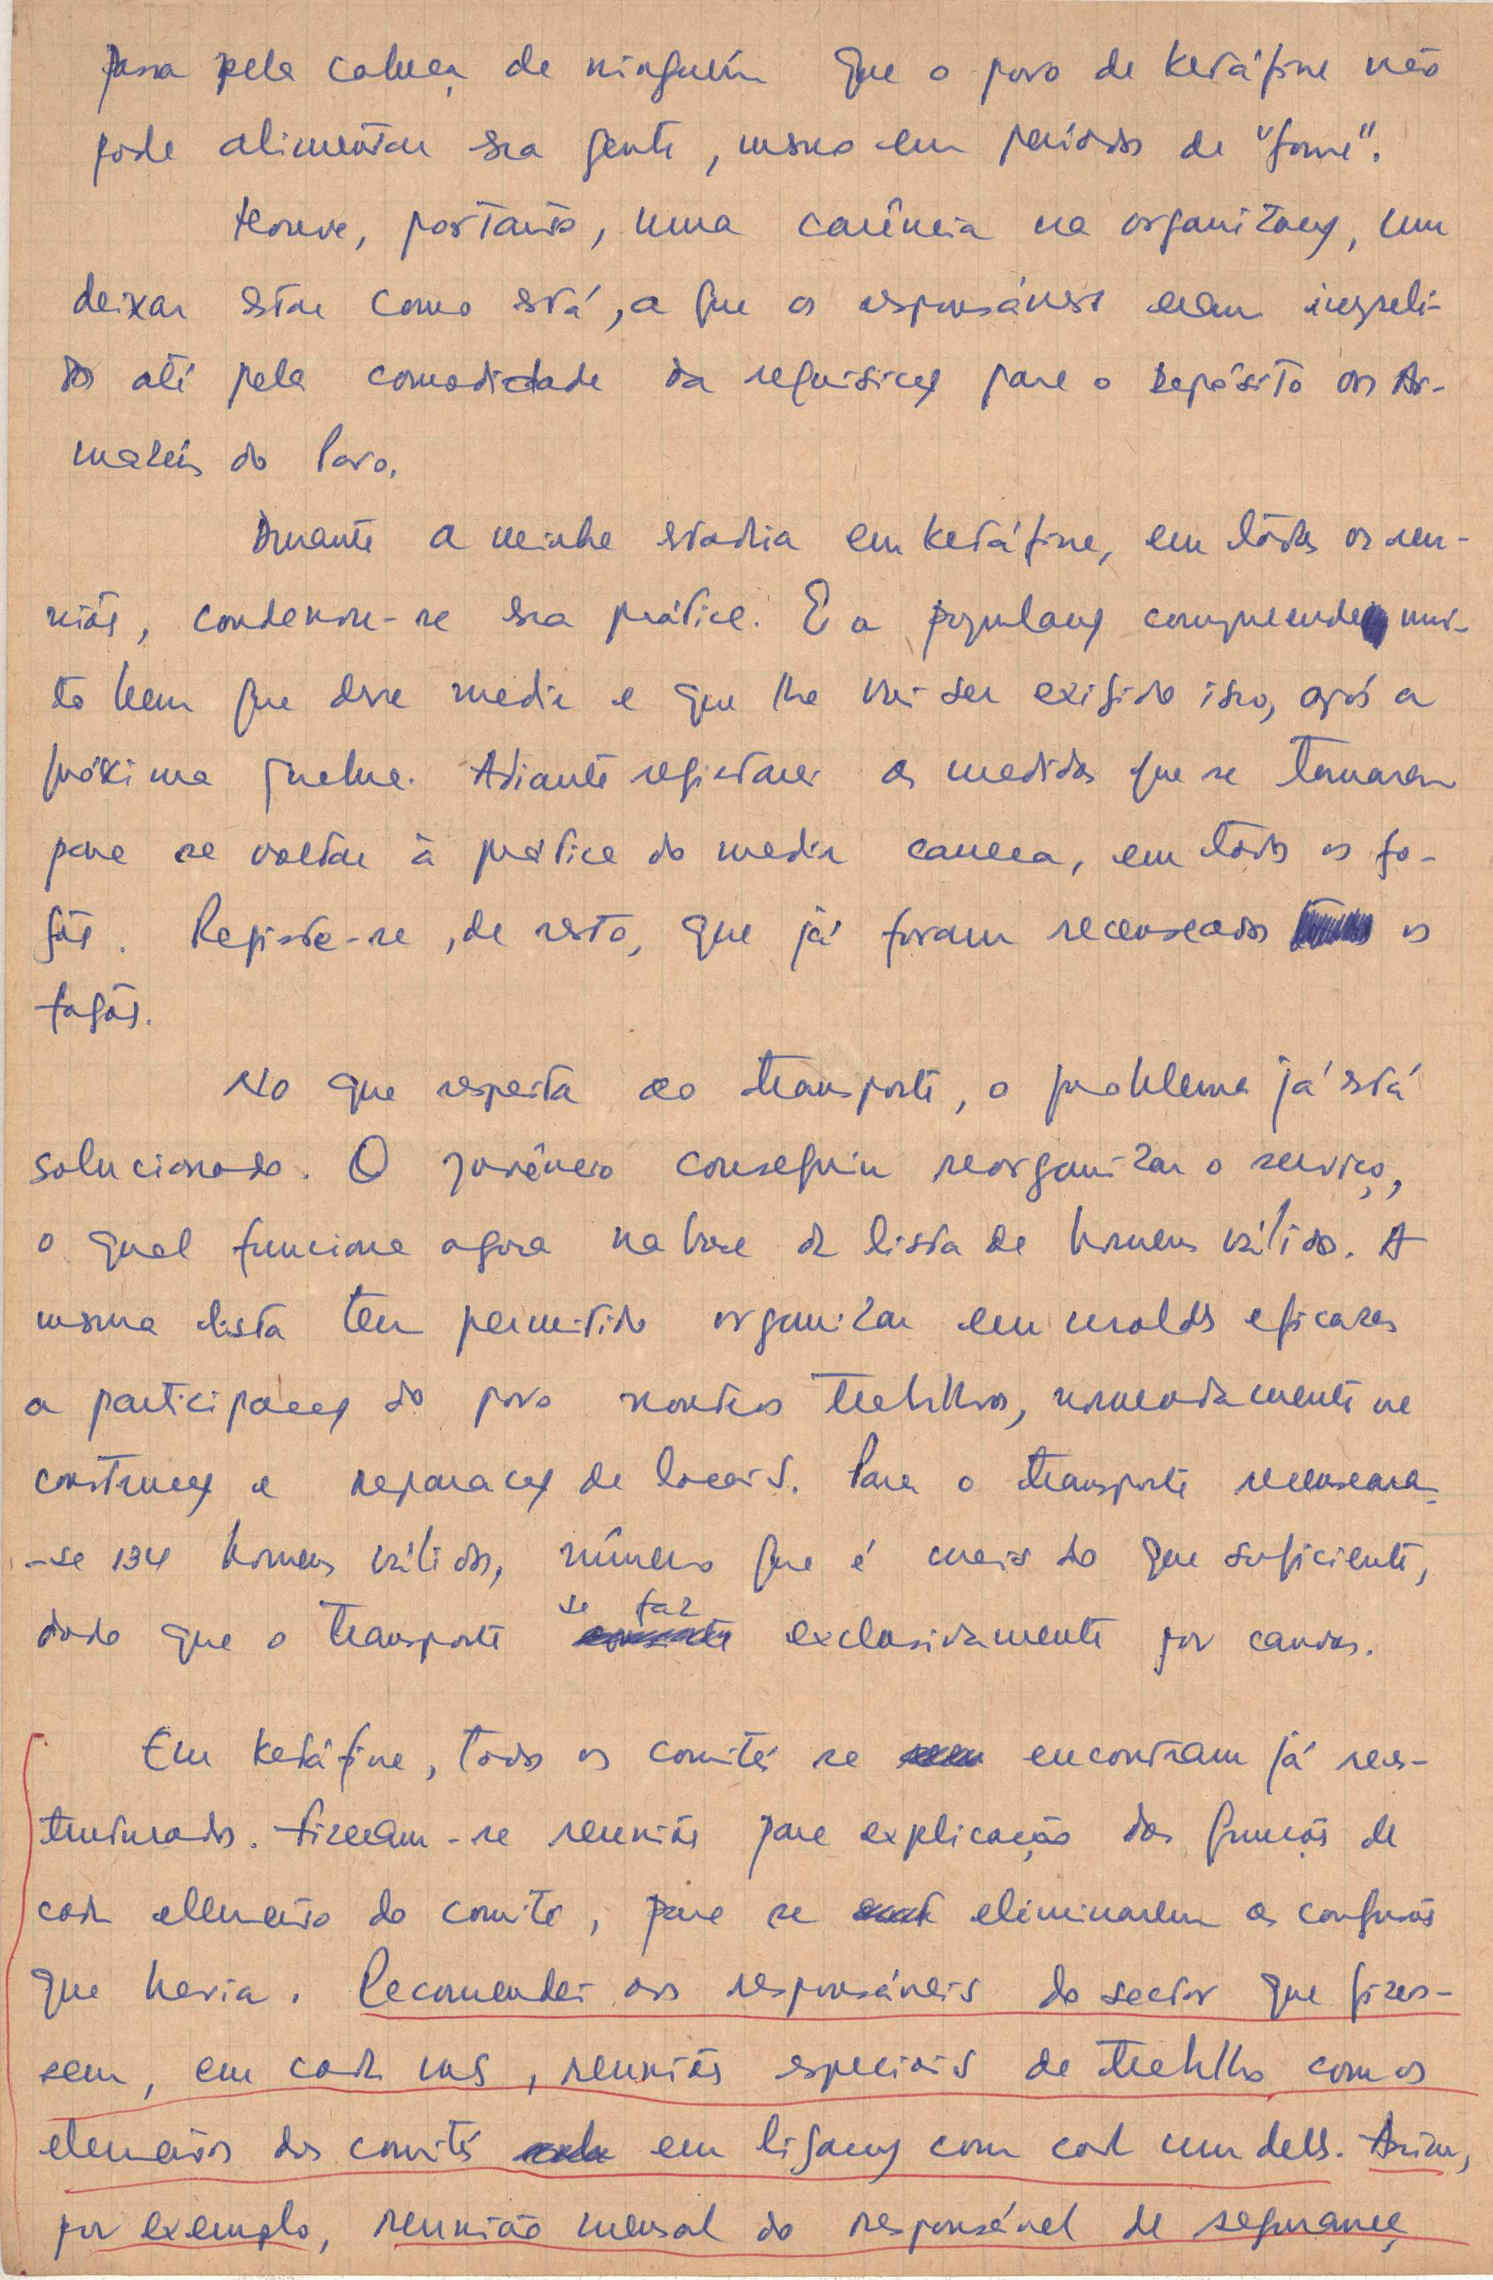 passa pela cabeça de ninguém que o povo de Ketáfine não
pode alimentar essa gente, mesmo em períodos de "fome".
Houve, portanto, uma carência na organização, um
deixar estar como está, a que os responsáveis eram impeli-
dos até pela comodidade da requisição para o Depósito ou Ar-
mazéns do Povo.
Durante a minha estadia em Ketáfine, em todas as reu-
niões, condenou-se essa prática. E a população compreende mui-
to bem que deve medir e que lhe vai ser exigido isso, após a
próxima quebra. Adiante registarei as medidas que se tomaram
para se voltar à prática do medir caneca, em todos os fo-
gões. Registe-se, de resto, que já foram recenseados os
fogões.
No que respeita ao transporte, o problema já está
solucionado. O Juvêncio conseguiu reorganizar o serviço,
o qual funciona agora na base de lista de homens válidos. A
mesma lista tem permitido organizar em moldes eficazes
a participação do povo noutros trabalhos, nomeadamente na
construção e reparação de locais. Para o transporte recenseara-
-se 134 homens válidos, número que é mais do que suficiente,
dado que o transporte se faz exclusivamente por canoas.
Em Ketáfine, todos os comités se encontram já rees-
truturados. Fizeram-se reuniões para explicação das funções de
cada elemento do comité, para se eliminarem as confusões
que havia. Recomendei aos responsáveis do sector que fizes-
sem, em cada mês, reuniões especiais de trabalho com os
elementos dos comités em ligação com cada um deles. Assim,
por exemplo, reunião mensal do responsável de segurança